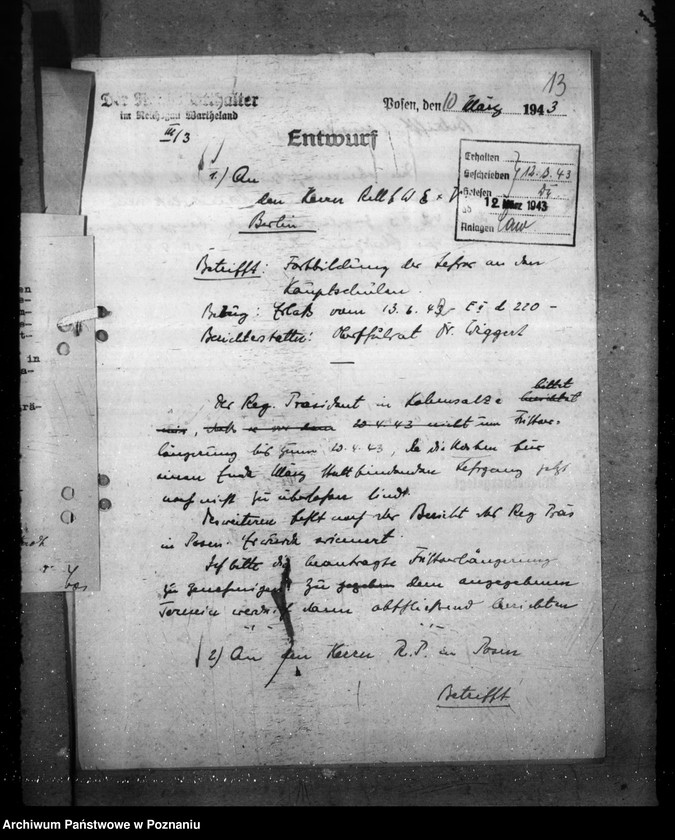 13
Der Reichsstatthalter
im Reichsgau Wartheland
III/3
Posen, den 10 März 1943
Entwurf
Erhalten
Geschrieben 12.3.43
Gelesen
12. März 1943
Anlagen
1.) An
den Herrn
Berlin
Betrifft: Fortbildung der Lehrer an den
Hauptschulen.
Bezug: Erlaß vom 13.6.42
Berichterstatter: Dr. Wiggert
Der Reg. Präsident in Hohensalza berichtet bittet
mir, daß er vor dem 10.4.43 nicht um Fristver-
längerung bis zum 10.4.43, da die Kosten für
einen Ende März stattfindenden Lehrgang jetzt
noch nicht zu übersehen sind.
Desweiteren fehlt noch der Bericht des Reg. Präs
in Posen. Er wurde erinnert.
Ich bitte die beantragte Fristverlängerung
zu genehmigen. Zu dem angegebenen
Termin werde ich dann abschließend berichten
2) An den Herrn R.P. in Posen
Betrifft
in
Archiwum Państwowe w Poznaniu